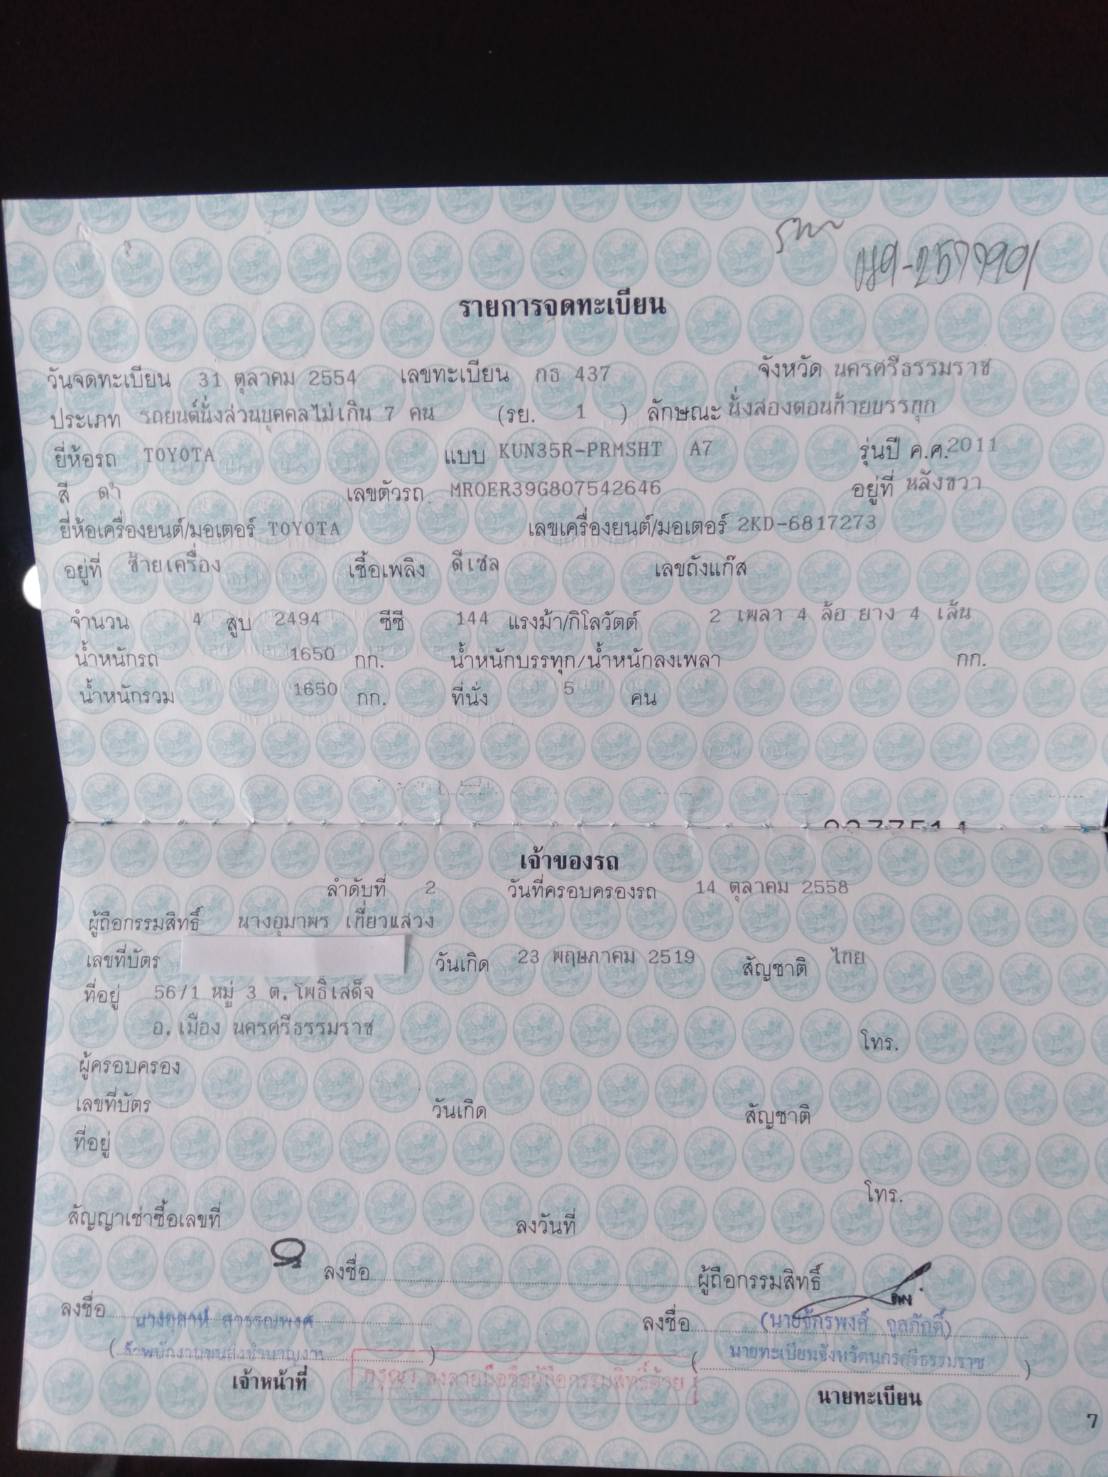 089-2577901
รายการจดทะเบียน
วันจดทะเบียน 31 ตุลาคม 2554 เลขทะเบียน กธ 437 จังหวัด นครศรีธรรมราช
ประเภท รถยนต์นั่งส่วนบุคคลไม่เกิน 7 คน (รย. 1 ) ลักษณะ นั่งสองตอนท้ายบรรทุก
ยี่ห้อรถ TOYOTA แบบ KUN35R-PRMSHT A7 รุ่นปี ค.ศ.2011
สี ดำ เลขตัวรถ MR0ER39G807542646 อยู่ที่ หลังขวา
ยี่ห้อเครื่องยนต์/มอเตอร์ TOYOTA เลขเครื่องยนต์/มอเตอร์ 2KD-6817273
อยู่ที่ ซ้ายเครื่อง เชื้อเพลิง ดีเซล เลขถังแก๊ส
จำนวน 4 สูบ 2494 ซีซี 144 แรงม้า/กิโลวัตต์ 2 เพลา 4 ล้อ ยาง 4 เส้น
น้ำหนักรถ 1650 กก. น้ำหนักบรรทุก/น้ำหนักลงเพลา กก.
น้ำหนักรวม 1650 กก. ที่นั่ง 5 คน
เจ้าของรถ
ลำดับที่ 2 วันที่ครอบครองรถ 14 ตุลาคม 2558
ผู้ถือกรรมสิทธิ์ นางอุมาพร เกี้ยวแสวง
เลขที่บัตร วันเกิด 23 พฤษภาคม 2519 สัญชาติ ไทย
ที่อยู่ 56/1 หมู่ 3 ต.โพธิ์เสด็จ
อ.เมือง นครศรีธรรมราช โทร.
ผู้ครอบครอง
เลขที่บัตร วันเกิด สัญชาติ
ที่อยู่
โทร.
สัญญาเช่าซื้อเลขที่ ลงวันที่
ลงชื่อ ผู้ถือกรรมสิทธิ์
ลงชื่อ ลงชื่อ (นายจักรพงศ์ กุลภักดี)
(เจ้าพนักงานขนส่งชำนาญงาน ) (นายทะเบียนจังหวัดนครศรีธรรมราช )
เจ้าหน้าที่ กรุณา ลงลายมือชื่อผู้ถือกรรมสิทธิ์ด้วย นายทะเบียน
7